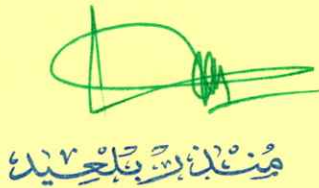 مُنْذِرْ بَلْعِيد